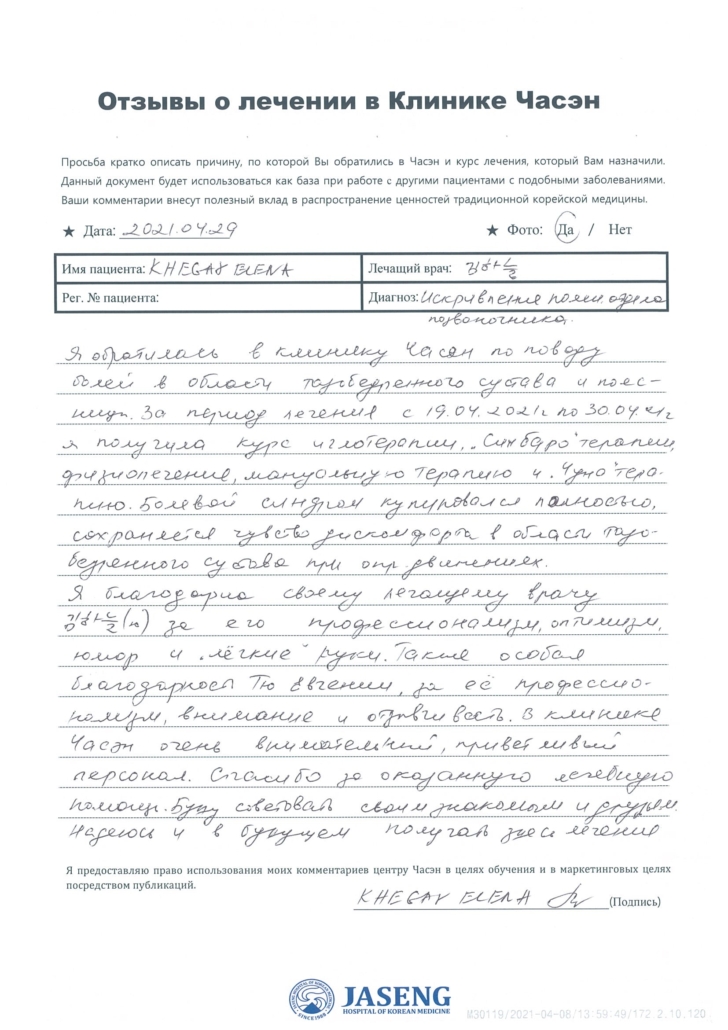 Отзывы о лечении в Клинике Часэн
Просьба кратко описать причину, по которой Вы обратились в Часэн и курс лечения, который Вам назначили.
Данный документ будет использоваться как база при работе с другими пациентами с подобными заболеваниями.
Ваши комментарии внесут полезный вклад в распространение ценностей традиционной корейской медицины.
★ Дата: 2021.04.29 ★ Фото: Да / Нет
Имя пациента: KHEGAY ELENA Лечащий врач:
Рег. № пациента: Диагноз: Искривление поясн. отдела
позвоночника.
Я обратилась в клинику Часэн по поводу
болей в области тазобедренного сустава и пояс-
ницы. За период лечения с 19.04.2021г по 30.04.21г
я получила курс иглотерапии, "Синбаро" терапии,
физиолечение, мануальную терапию и "Чуна" тера-
пию. Болевой синдром купировался полностью,
сохраняется чувство дискомфорта в области тазо-
бедренного сустава при опр. движениях.
Я благодарна своему лечащему врачу
за его профессионализм, оптимизм,
юмор и "лёгкие" руки. Также особая
благодарность Тю Евгении, за её профессио-
нализм, внимание и отзывчивость. В клинике
Часэн очень внимательный, приветливый
персонал. Спасибо за оказанную лечебную
помощь. Буду советовать своим знакомым и друзьям.
Надеюсь и в будущем получать здесь лечение
Я предоставляю право использования моих комментариев центру Часэн в целях обучения и в маркетинговых целях
посредством публикаций.
KHEGAY ELENA (Подпись)
JASENG HOSPITAL OF KOREAN MEDICINE
SINCE 1988
JASENG
HOSPITAL OF KOREAN MEDICINE
M30119/2021-04-08/13:59:49/172.2.10.120